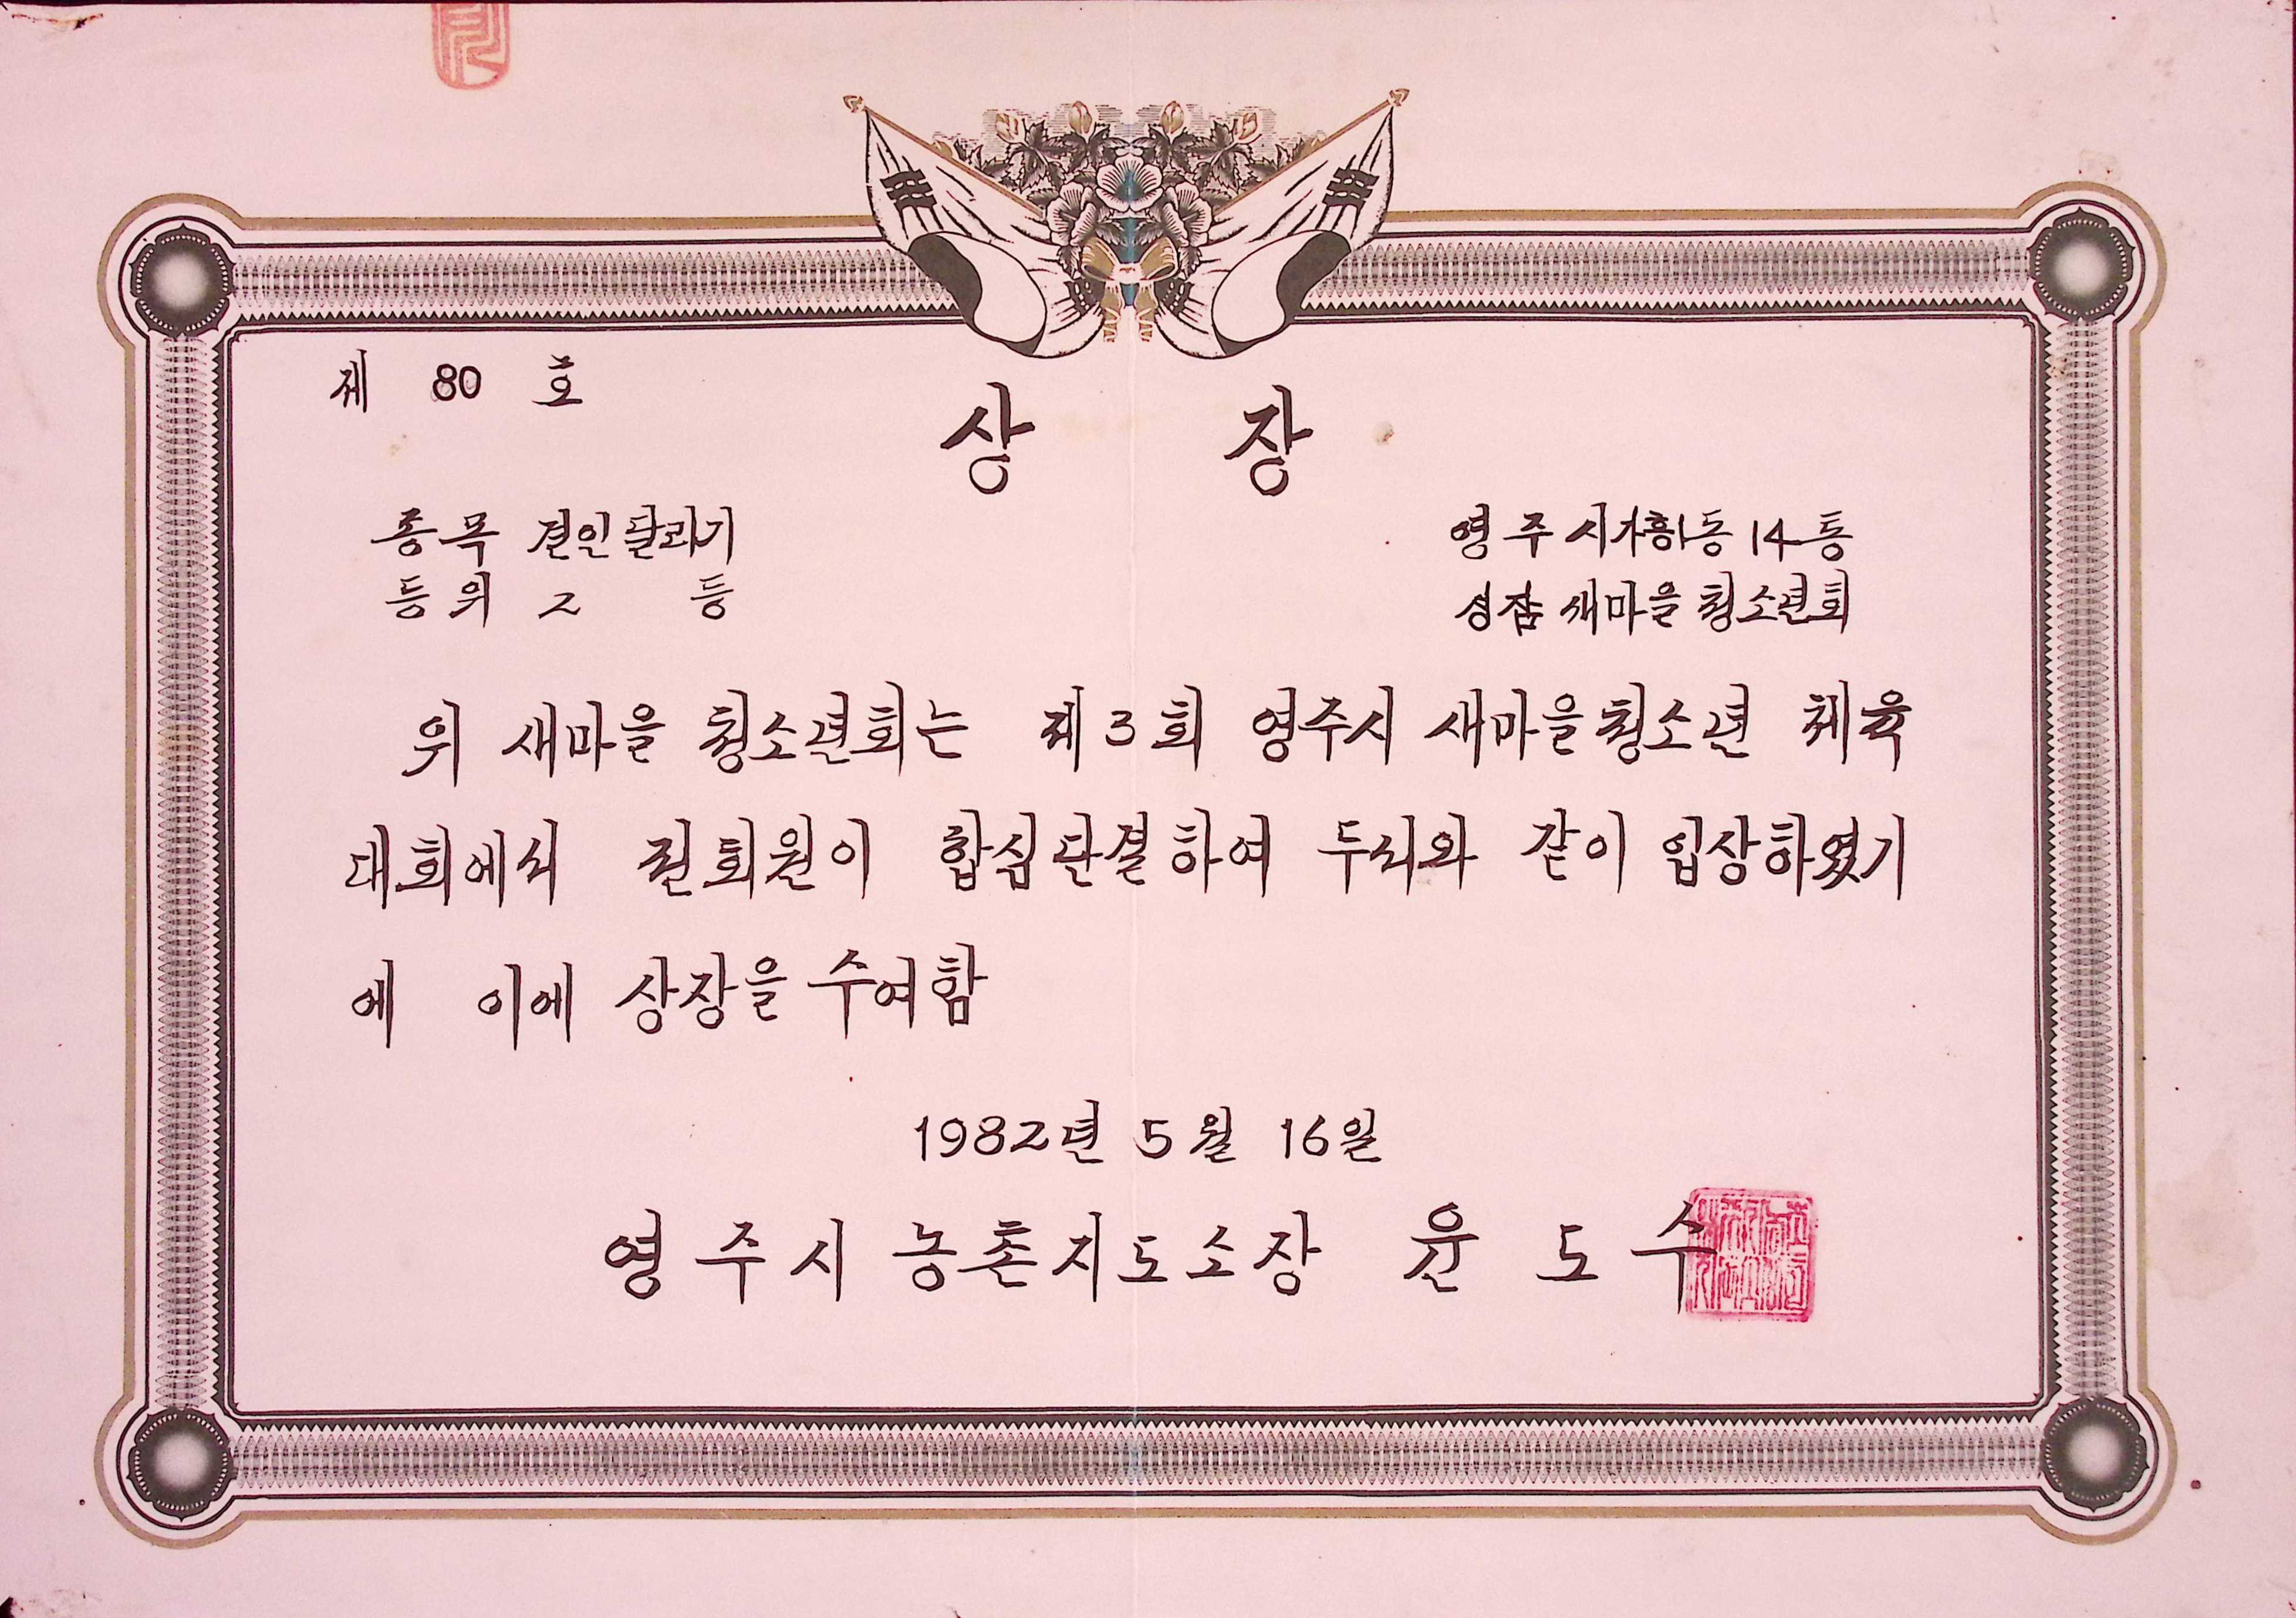 제 80 호
상 장
종목 견인달리기
등위 2 등
영주시가흥1동 14통
성잠 새마을 청소년회
위 새마을 청소년회는 제3회 영주시 새마을청소년 체육
대회에서 전회원이 합심단결하여 두서와 같이 입상하였기
에 이에 상장을 수여함
1982년 5월 16일
영주시 농촌지도소장 윤도수